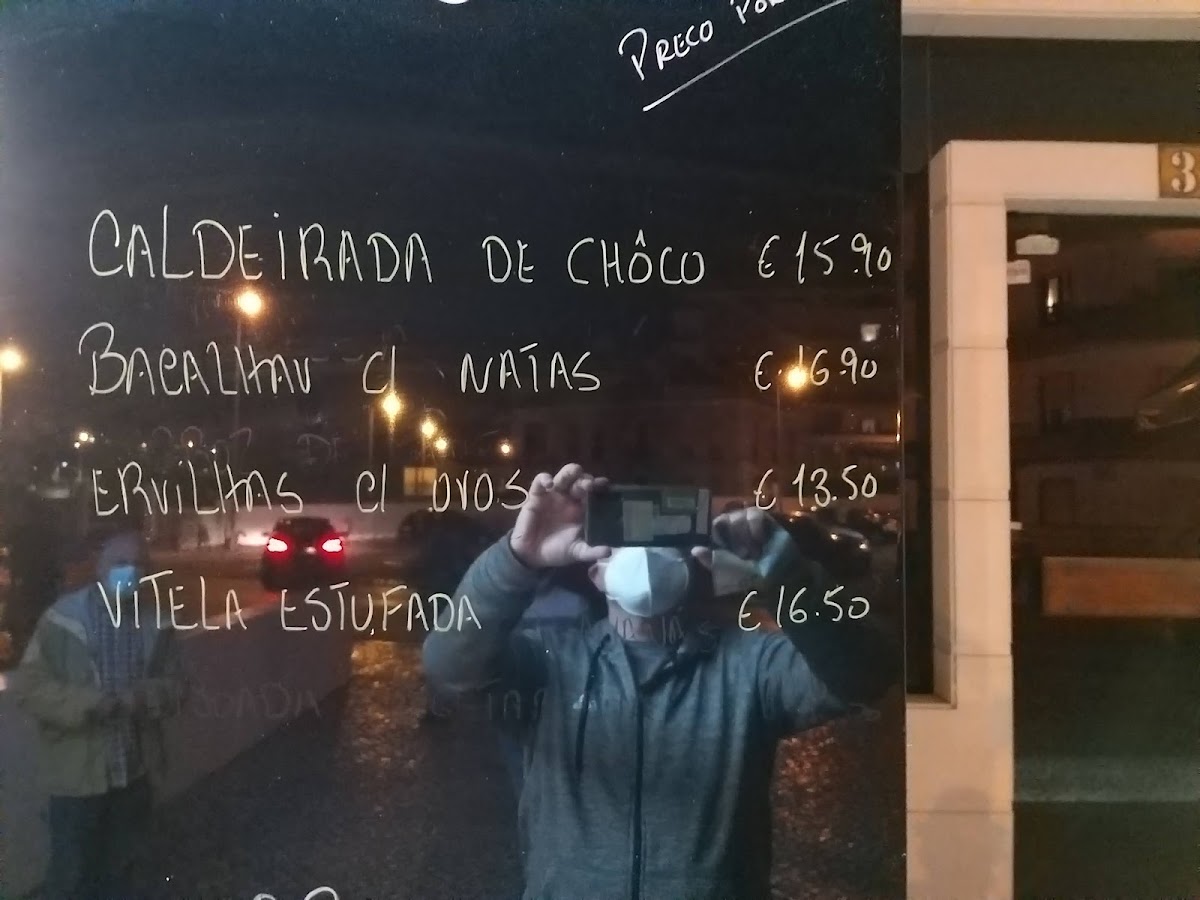 PRECO POR
CALDEIRADA DE CHÔCO € 15.90
BACALHAU C/ NATAS € 16.90
ERVILHAS C/ OVOS € 13.50
VITELA ESTUFADA € 16.50
3